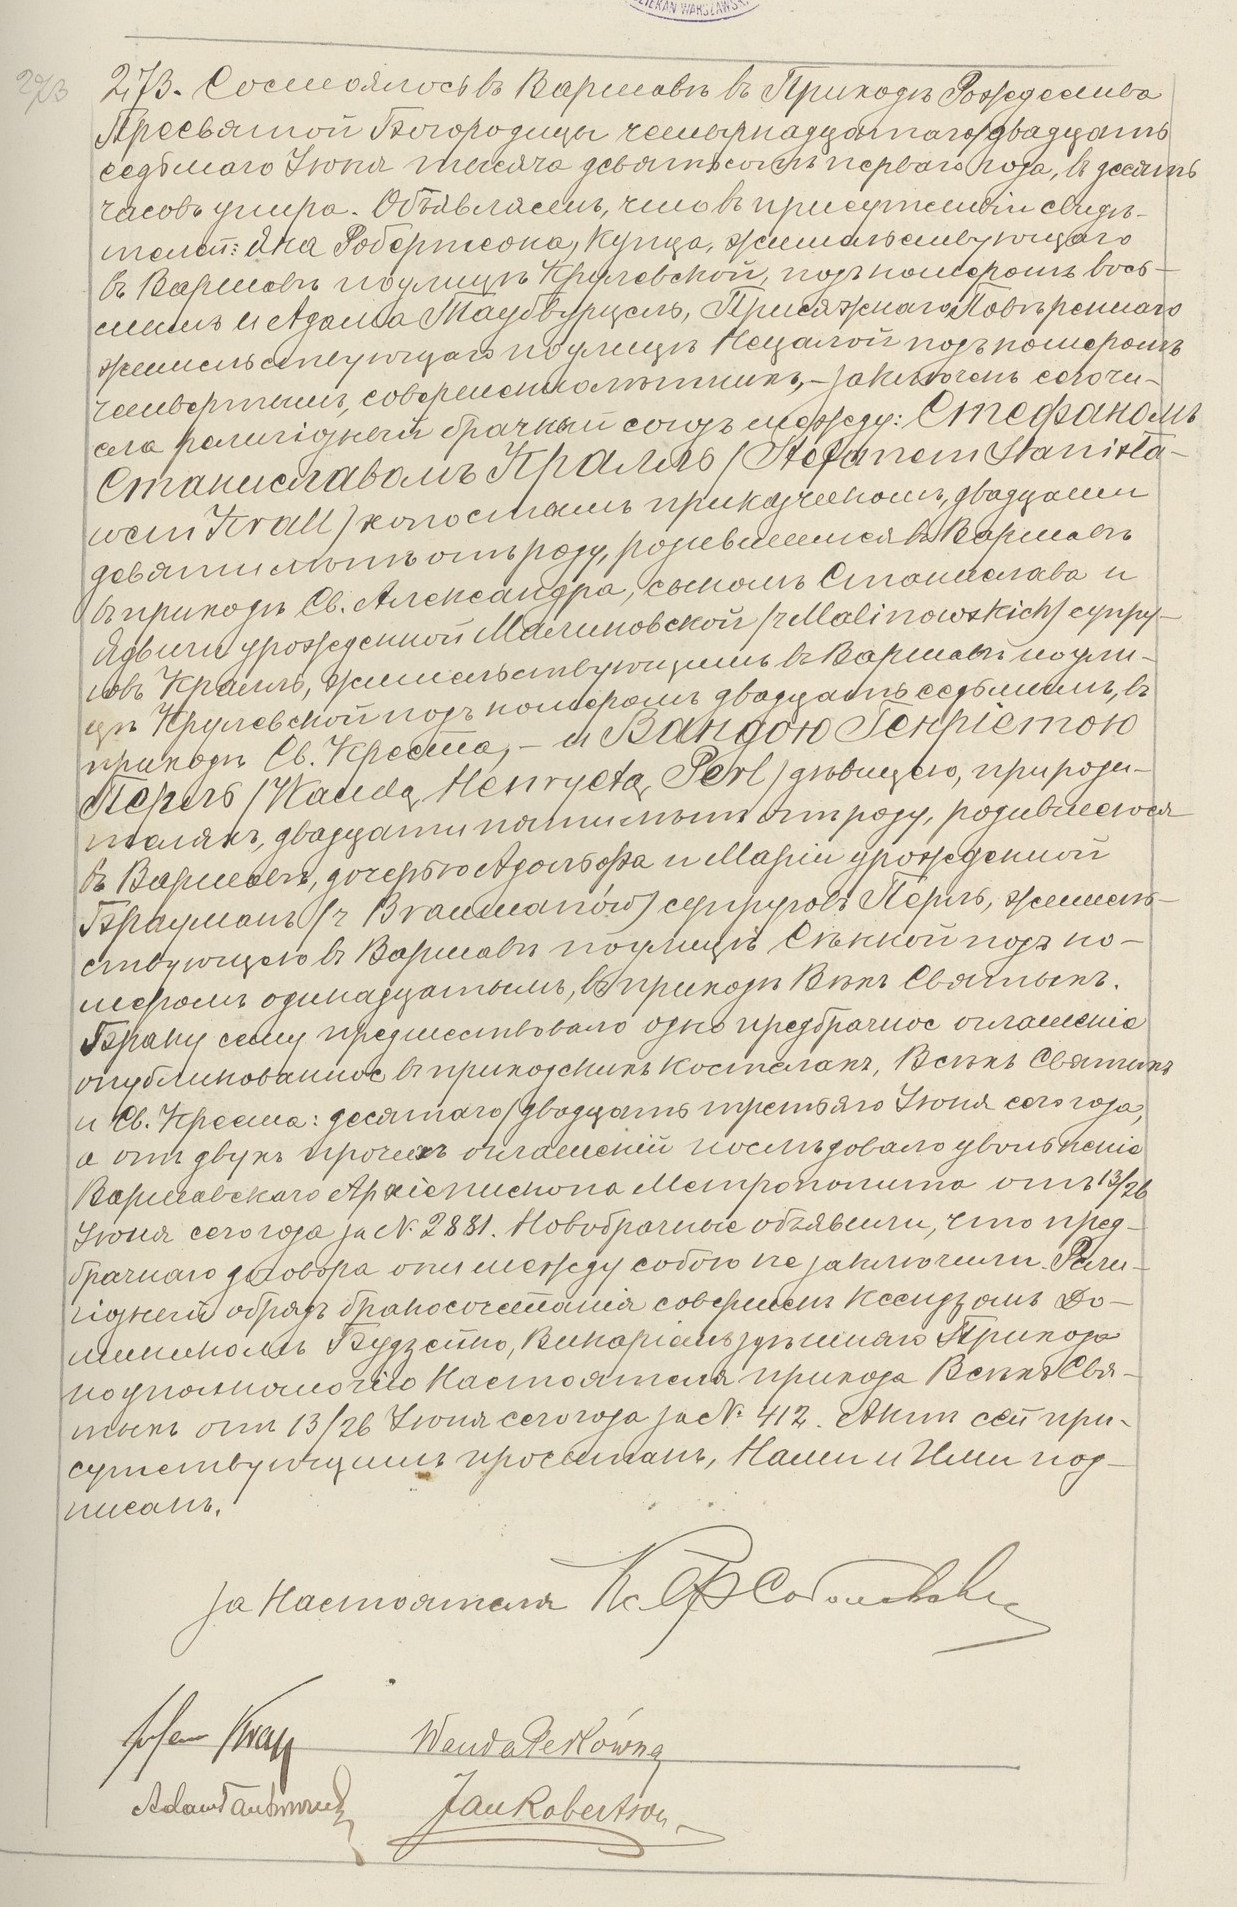 DZIEKAN WARSZAWSKI
273
273. Состоялось въ Варшавѣ въ Приходѣ Рождества
Пресвятой Богородицы четырнадцатаго/двадцать
седьмаго Іюня тысяча девятьсотъ перваго года, въ десять
часовъ утра. Объявляемъ, что въ присутствіи свидѣ-
телей: Яна Робертсона, купца, жительствующаго
въ Варшавѣ по улицѣ Крулевской, подъ номеромъ вось-
мымъ и Адама Таубвурцель, Присяжнаго Повѣреннаго
жительствующаго по улицѣ Нецалой подъ номеромъ
четвертымъ, совершеннолѣтнихъ, – заключенъ сего чи-
сла религіозный брачный союзъ между: Стефаномъ
Станиславомъ Кралль / Stefanem Stanisła-
wem Krall / холостымъ прихожаномъ, двадцати
девяти лѣтъ отъ роду, родившемся въ Варшавѣ
въ приходѣ Св. Александра, сыномъ Станислава и
Ядвиги урожденной Малиновской / z Malinowskich / супру-
говъ Кралль, жительствующимъ въ Варшавѣ по ули-
цѣ Крулевской подъ номеромъ двадцать седьмымъ, въ
приходѣ Св. Креста, – и Вандою Генріетою
Перль / Wandą Henryetą Perl / дѣвицею, при роди-
теляхъ, двадцати пяти лѣтъ отъ роду, родившеюся
въ Варшавѣ, дочерью Адольфа и Маріи урожденной
Брауманъ / z Braumanów / супруговъ Перль, житель-
ствующею въ Варшавѣ по улицѣ Сѣнной подъ но-
меромъ одинадцатымъ, въ приходѣ Всѣхъ Святыхъ.
Браку сему предшествовало одно предбрачное оглашеніе
опубликованное въ приходскихъ костелахъ, Всѣхъ Святыхъ
и Св. Креста: десятаго/двадцать третьяго Іюня сего года,
а отъ двухъ прочихъ оглашеній послѣдовало увольненіе
Варшавскаго Архіепископа Митрополита отъ 13/26
Іюня сего года за № 2881. Новобрачные объявили, что пред-
брачнаго договора они между собою не заключили. Рели-
гіозный обрядъ бракосочетанія совершенъ Ксендзомъ До-
миникомъ Будзейко, Викаріемъ здѣшняго Прихода
по уполномочію Настоятеля прихода Всѣхъ Свя-
тыхъ отъ 13/26 Іюня сего года за № 412. Актъ сей при-
сутствующимъ прочитанъ, Нами и Ими под-
писанъ.
За Настоятеля Кс.
Stefan Krall Wanda Perlówna
Adam Jan Robertson